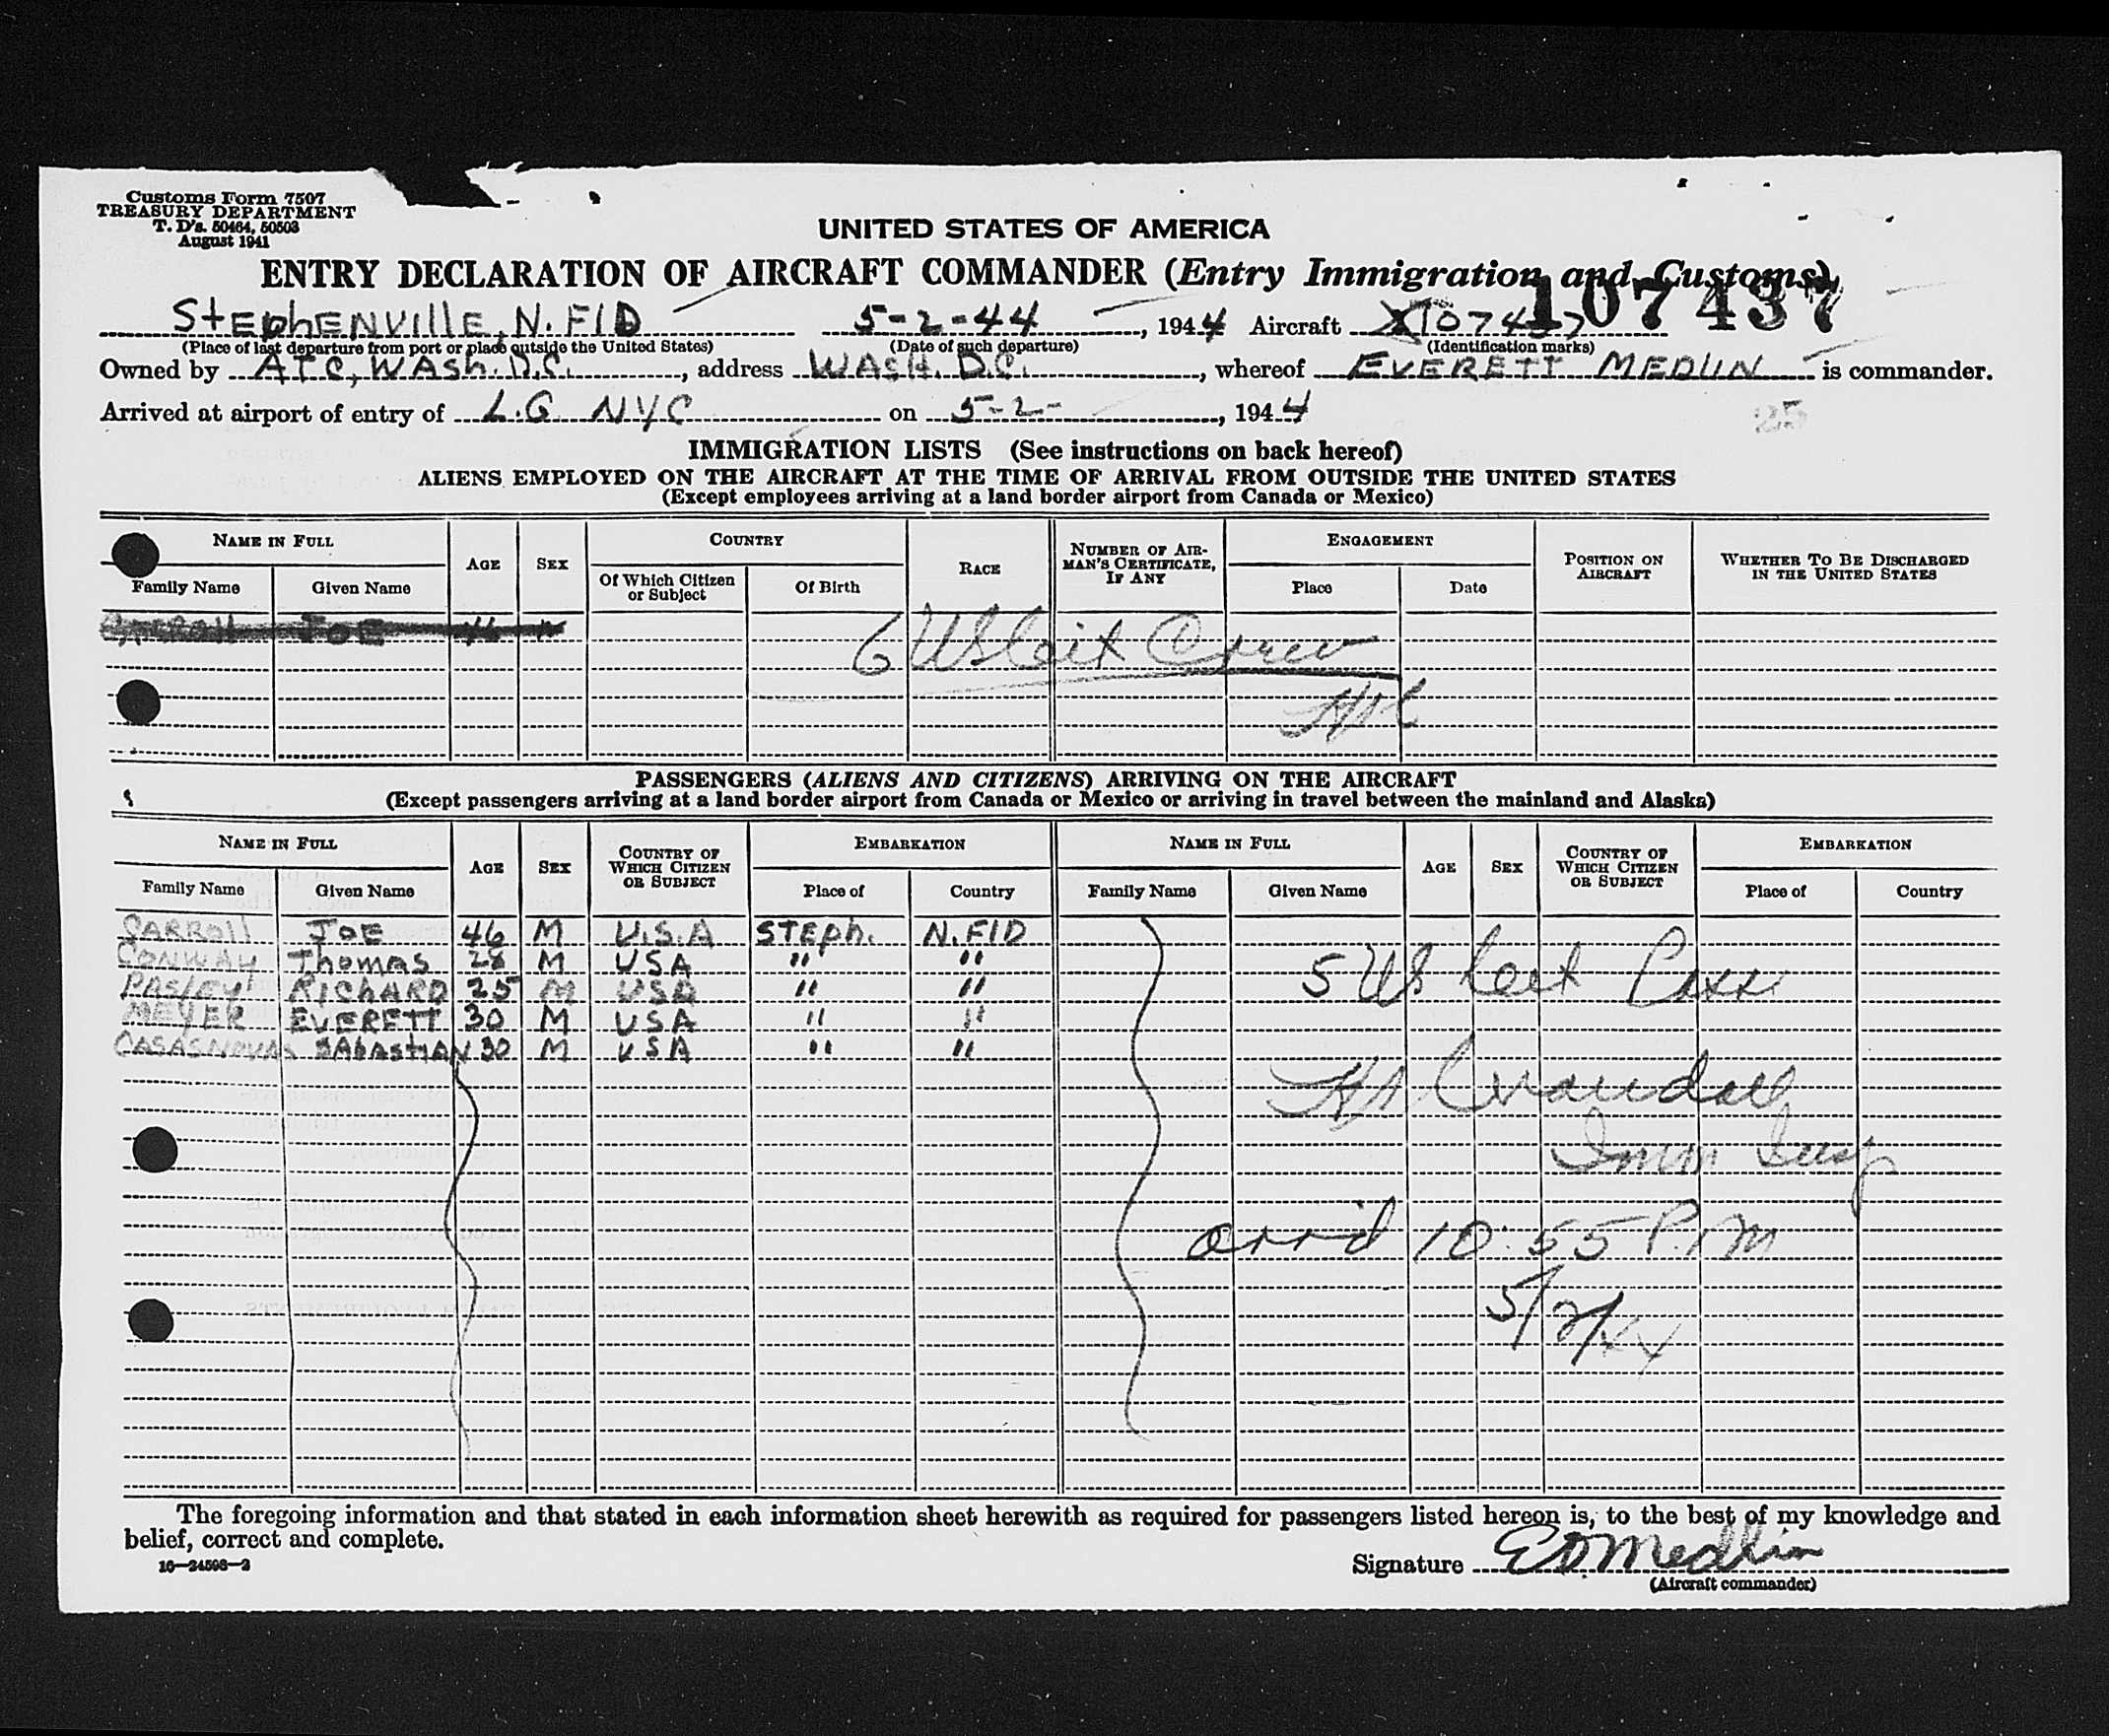 Customs Form 7507
TREASURY DEPARTMENT
T. D's. 50464, 50503
August 1941
UNITED STATES OF AMERICA
ENTRY DECLARATION OF AIRCRAFT COMMANDER (Entry Immigration and Customs)
107437
StEphENVIllE, N. FlD 5-2-44, 1944 Aircraft X107437
(Place of last departure from port or place outside the United States) (Date of such departure) (Identification marks)
Owned by ATC, WASh. D.C., address WASH. D.C., whereof EVERETT MEDLIN is commander.
Arrived at airport of entry of L.G. NYC on 5-2-, 1944
25
IMMIGRATION LISTS (See instructions on back hereof)
ALIENS EMPLOYED ON THE AIRCRAFT AT THE TIME OF ARRIVAL FROM OUTSIDE THE UNITED STATES
(Except employees arriving at a land border airport from Canada or Mexico)
NAME IN FULL AGE SEX COUNTRY RACE NUMBER OF AIRMAN'S CERTIFICATE, IF ANY ENGAGEMENT POSITION ON AIRCRAFT WHETHER TO BE DISCHARGED IN THE UNITED STATES
Family Name Given Name Of Which Citizen or Subject Of Birth Place Date
CARROll JOE 46 M
6 US Cit Crew
PASSENGERS (ALIENS AND CITIZENS) ARRIVING ON THE AIRCRAFT
(Except passengers arriving at a land border airport from Canada or Mexico or arriving in travel between the mainland and Alaska)
NAME IN FULL AGE SEX COUNTRY OF WHICH CITIZEN OR SUBJECT EMBARKATION NAME IN FULL AGE SEX COUNTRY OF WHICH CITIZEN OR SUBJECT EMBARKATION
Family Name Given Name Place of Country Family Name Given Name Place of Country
CARROll JOE 46 M U.S.A STEph. N. FlD
CONWAY Thomas 28 M USA " "
PASlEY RICHARD 25 M USA " "
MEYER EVERETT 30 M USA " "
CASASNOVAS SAbASTIAN 30 M USA " "
5 US Cit Pax
Crandall
Imm Insp
arr'd 10:55 P.M
5/2/44
The foregoing information and that stated in each information sheet herewith as required for passengers listed hereon is, to the best of my knowledge and
belief, correct and complete.
16—24598-2
Signature E D Medlin
(Aircraft commander)